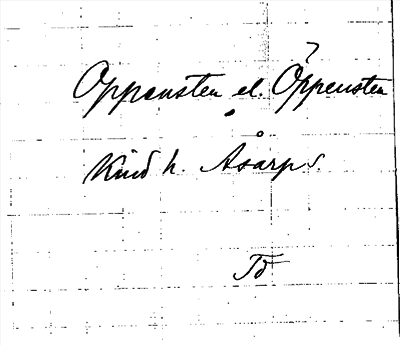 Oppensten el. Öppensten
Kind h. Åsarp s.
Td